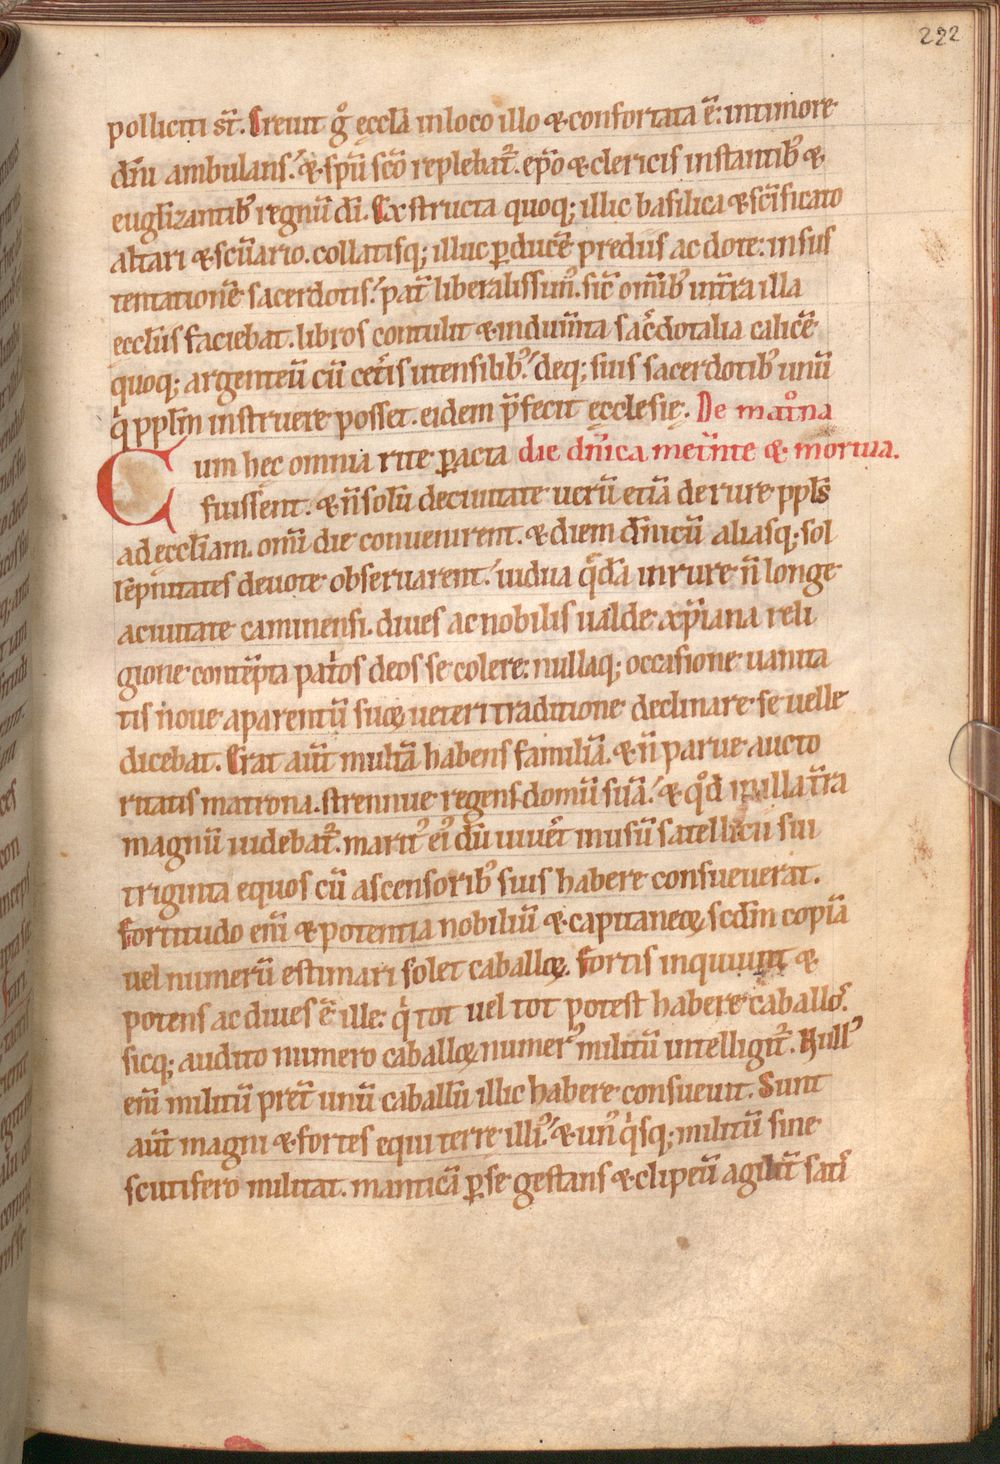 222
polliciti st̄. Creuit g̊ ęccl̄a in loco illo & confortata ē: in timore
dn̄i ambulans. & sp̄u sc̄o replebat᷑. ep̄o & clericis instantib; &
eugl̄izantib; regnū dī. Exstructa quoq; illic basilica & sc̄ificato
altari & scūario. collatisq; illuc p̱ ducē prediis ac dote: in sus
tentationē sacerdotis. pat̄ liberalissim᷒. sic̄ om̄ib; in t̄ra illa
eccl̄iis faciebat. libros contulit & indum̄ta sac̄dotalia calicē
quoq; argenteū cū cet̄is utensilib;. deq; suis sacerdotib; unū
qͥ ppl̄m instruere posset. eidem p̄fecit ęcclesię. De mat͛ona
Cum hec omnia rite p̱acta die dn̄ica metn̄te & mortua.
fuissent. & n̄ solū de ciuitate uerū etiā de rure ppl̄s
ad ęccl̄iam. om̄i die conuenirent. & diem dn̄icū aliasq; sol
lēpnitates deuote obseruarent. uidua q̄dā in rure n̄ longe
a ciuitate caminensi. diues ac nobilis ualde xp̄iana reli
gione contēpta pat͛os deos se colere: nullaq; occasione uanita
tis noue a parentū suoꝝ ueteri traditione declinare se uelle
dicebat. Erat aūt multā habens familiā. & n̄ parue aucto
ritatis matrona. strennue regens domū suā. & qd̊ in illa t̄ra
magnū uidebat᷑. marit᷒ ei᷒ dū uiuet̄ in usū satellicii sui
triginta equos cū ascensorib; suis habere consueuerat.
Fortitudo eni̅ & potentia nobiliū & capitaneoꝝ, scd̄m copiā
uel numerū estimari solet caballoꝝ. Fortis inquiunt &
potens ac diues ē ille: qͥ tot uel tot potest habere caballos.
sicq; audito numero caballoꝝ numer᷒ militū intelligit᷑. Null᷒
eni̅ militū pret̄ unū caballū illic habere consueuit. Sunt
aūt magni & fortes equi terre illi᷒. & un᷒qͥsq; militū sine
scutifero militat. manticā p̱ se gestans & clipeū agilit̄ satis